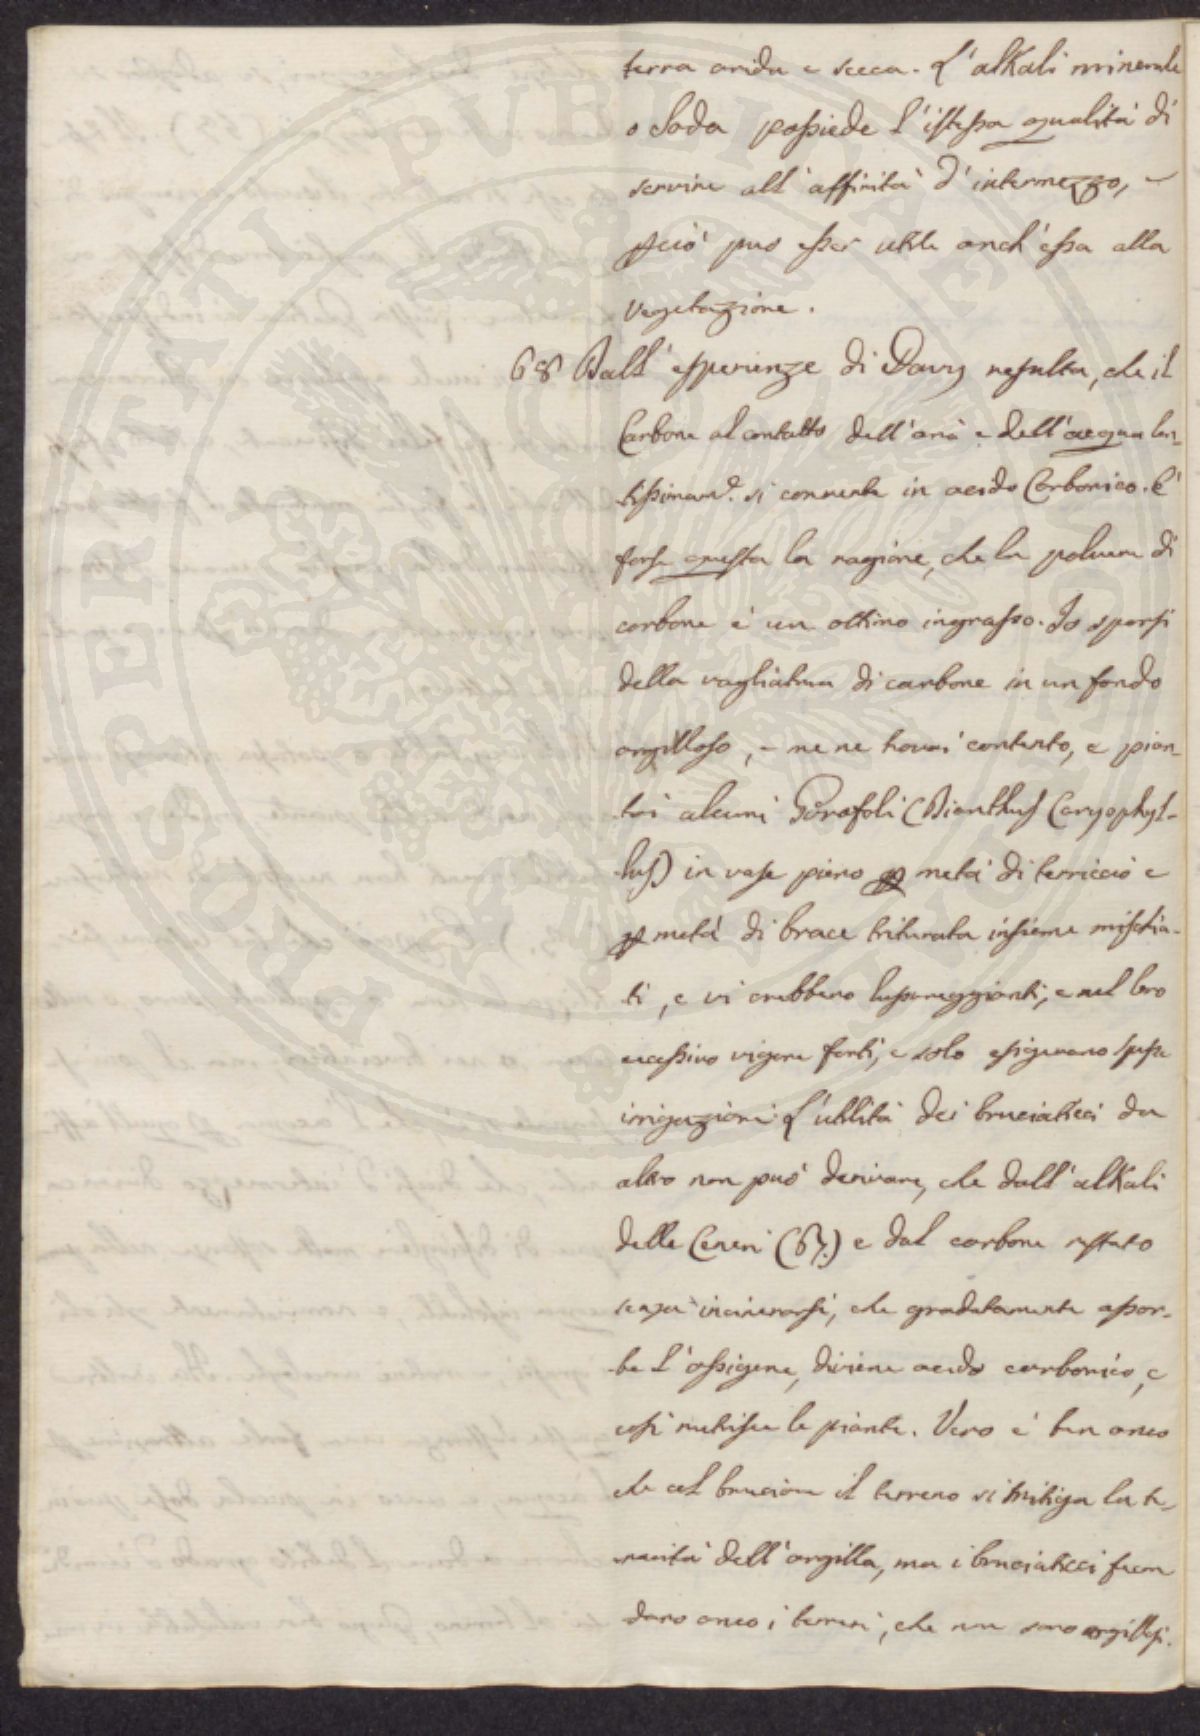 terra arida e secca. L'alKali minerale
o Soda possiede l'istessa qualità di
servire all'affinità d'intermezzo, e
perciò può esser utile anch'essa alla
vegetazione.
68 Dall'esperienze di Davy resulta, che il
Carbone al contatto dell'aria e dell'acqua len-
tissimam.e si converte in acido Carbonico. È
forse questa la ragione, che la polvere di
carbone è un ottimo ingrasso. Io sparsi
della vagliatura di carbone in un fondo
argilloso, e me ne trovai contento, e pian-
tai alcuni Garofoli (Dianthus Caryophyl-
lus) in vase pieno p metà di terriccio e
p metà di brace triturata insieme mischia-
ti, e vi crebbero lussureggianti, e nel loro
eccessivo vigore forti, e solo esigevano spesse
irrigazioni. L'utilità dei bruciaticci da
altro non può derivare, che dall'alKali
delle Ceneri (67.) e dal carbone restato
senza incinerarsi, che gradatamente assor-
be l'ossigene, diviene acido carbonico, e
così nutrisce le piante. Vero è ben anco
che col bruciare il terreno si mitiga la te-
nacità dell'argilla, ma i bruciaticci fecon
dano anco i terreni, che non sono argillosi.
POSPERITATI PVBLICAE